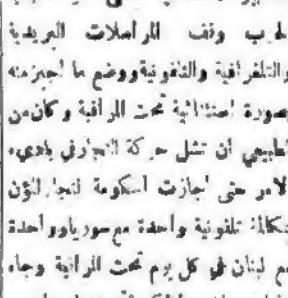 الحرب وقف المراسلات البريدية
والتلغرافية والتلفونية ووضع ما أجيز منه
بصورة استثنائية تحت المراقبة وكان من
الطبيعي ان تشل حركة التجار في باديء
الامر حتى اجازت الحكومة لتجار
مكالمة تلفونية واحدة مع سوريا وواحدة
مع لبنان في كل يوم تحت المراقبة وجاء